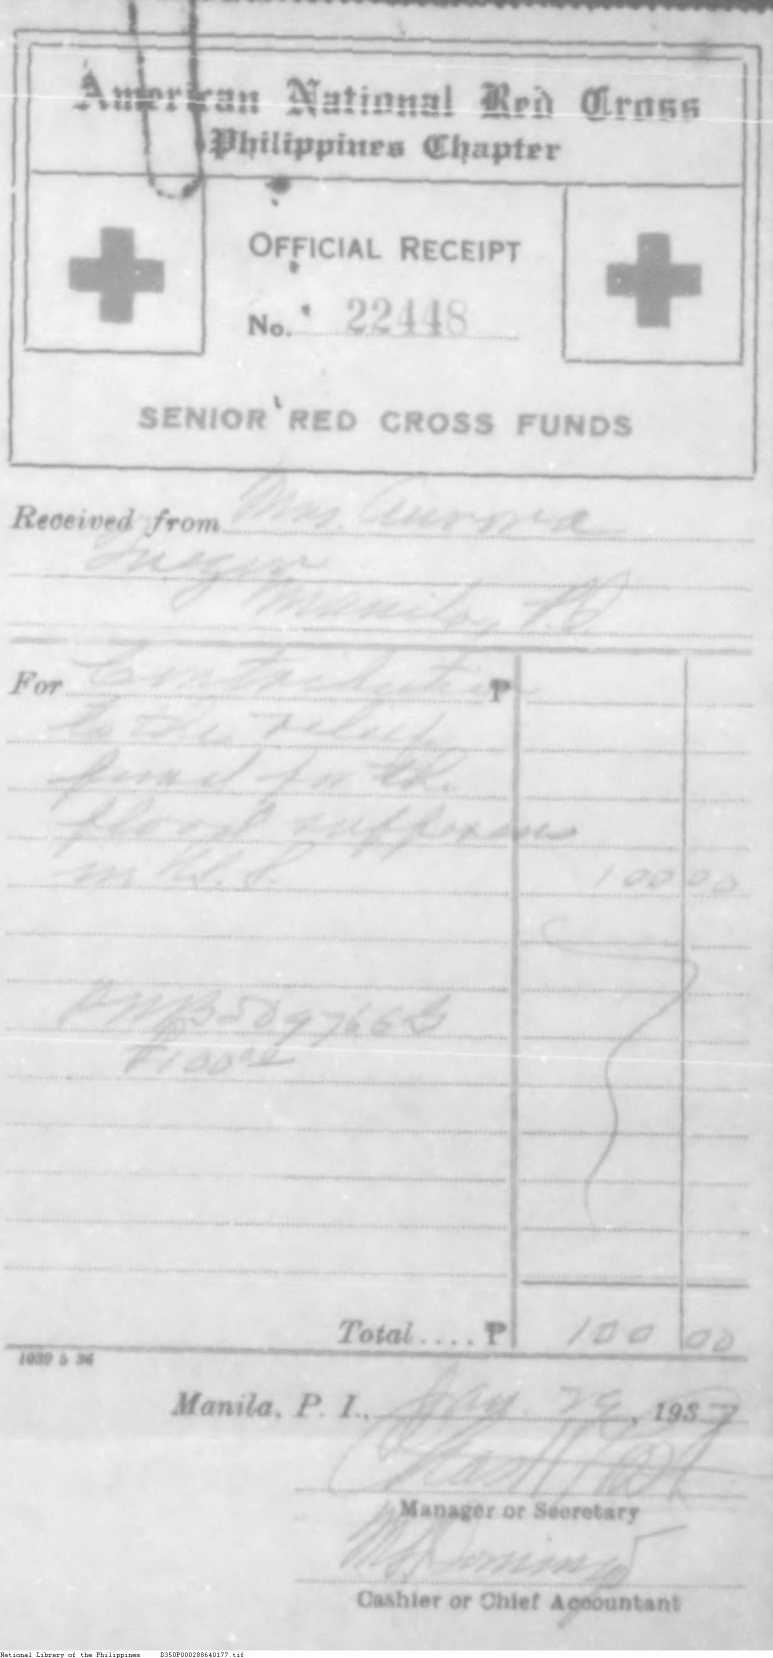 American National Red Cross
Philippines Chapter
OFFICIAL RECEIPT
No. 22448
SENIOR RED CROSS FUNDS
Received from Mrs. Aurora
Quezon
Manila, P.I.
For Contribution ₱
to the relief
fund for the
flood sufferers
in U.S. 100 00
PNB 509766
₱100.00
Total.... ₱ 100 00
1039 5 36
Manila, P. I., Jan. 29, 1937
Manager or Secretary
Domingo
Cashier or Chief Accountant
National Library of the Philippines D350P000288640177.tif